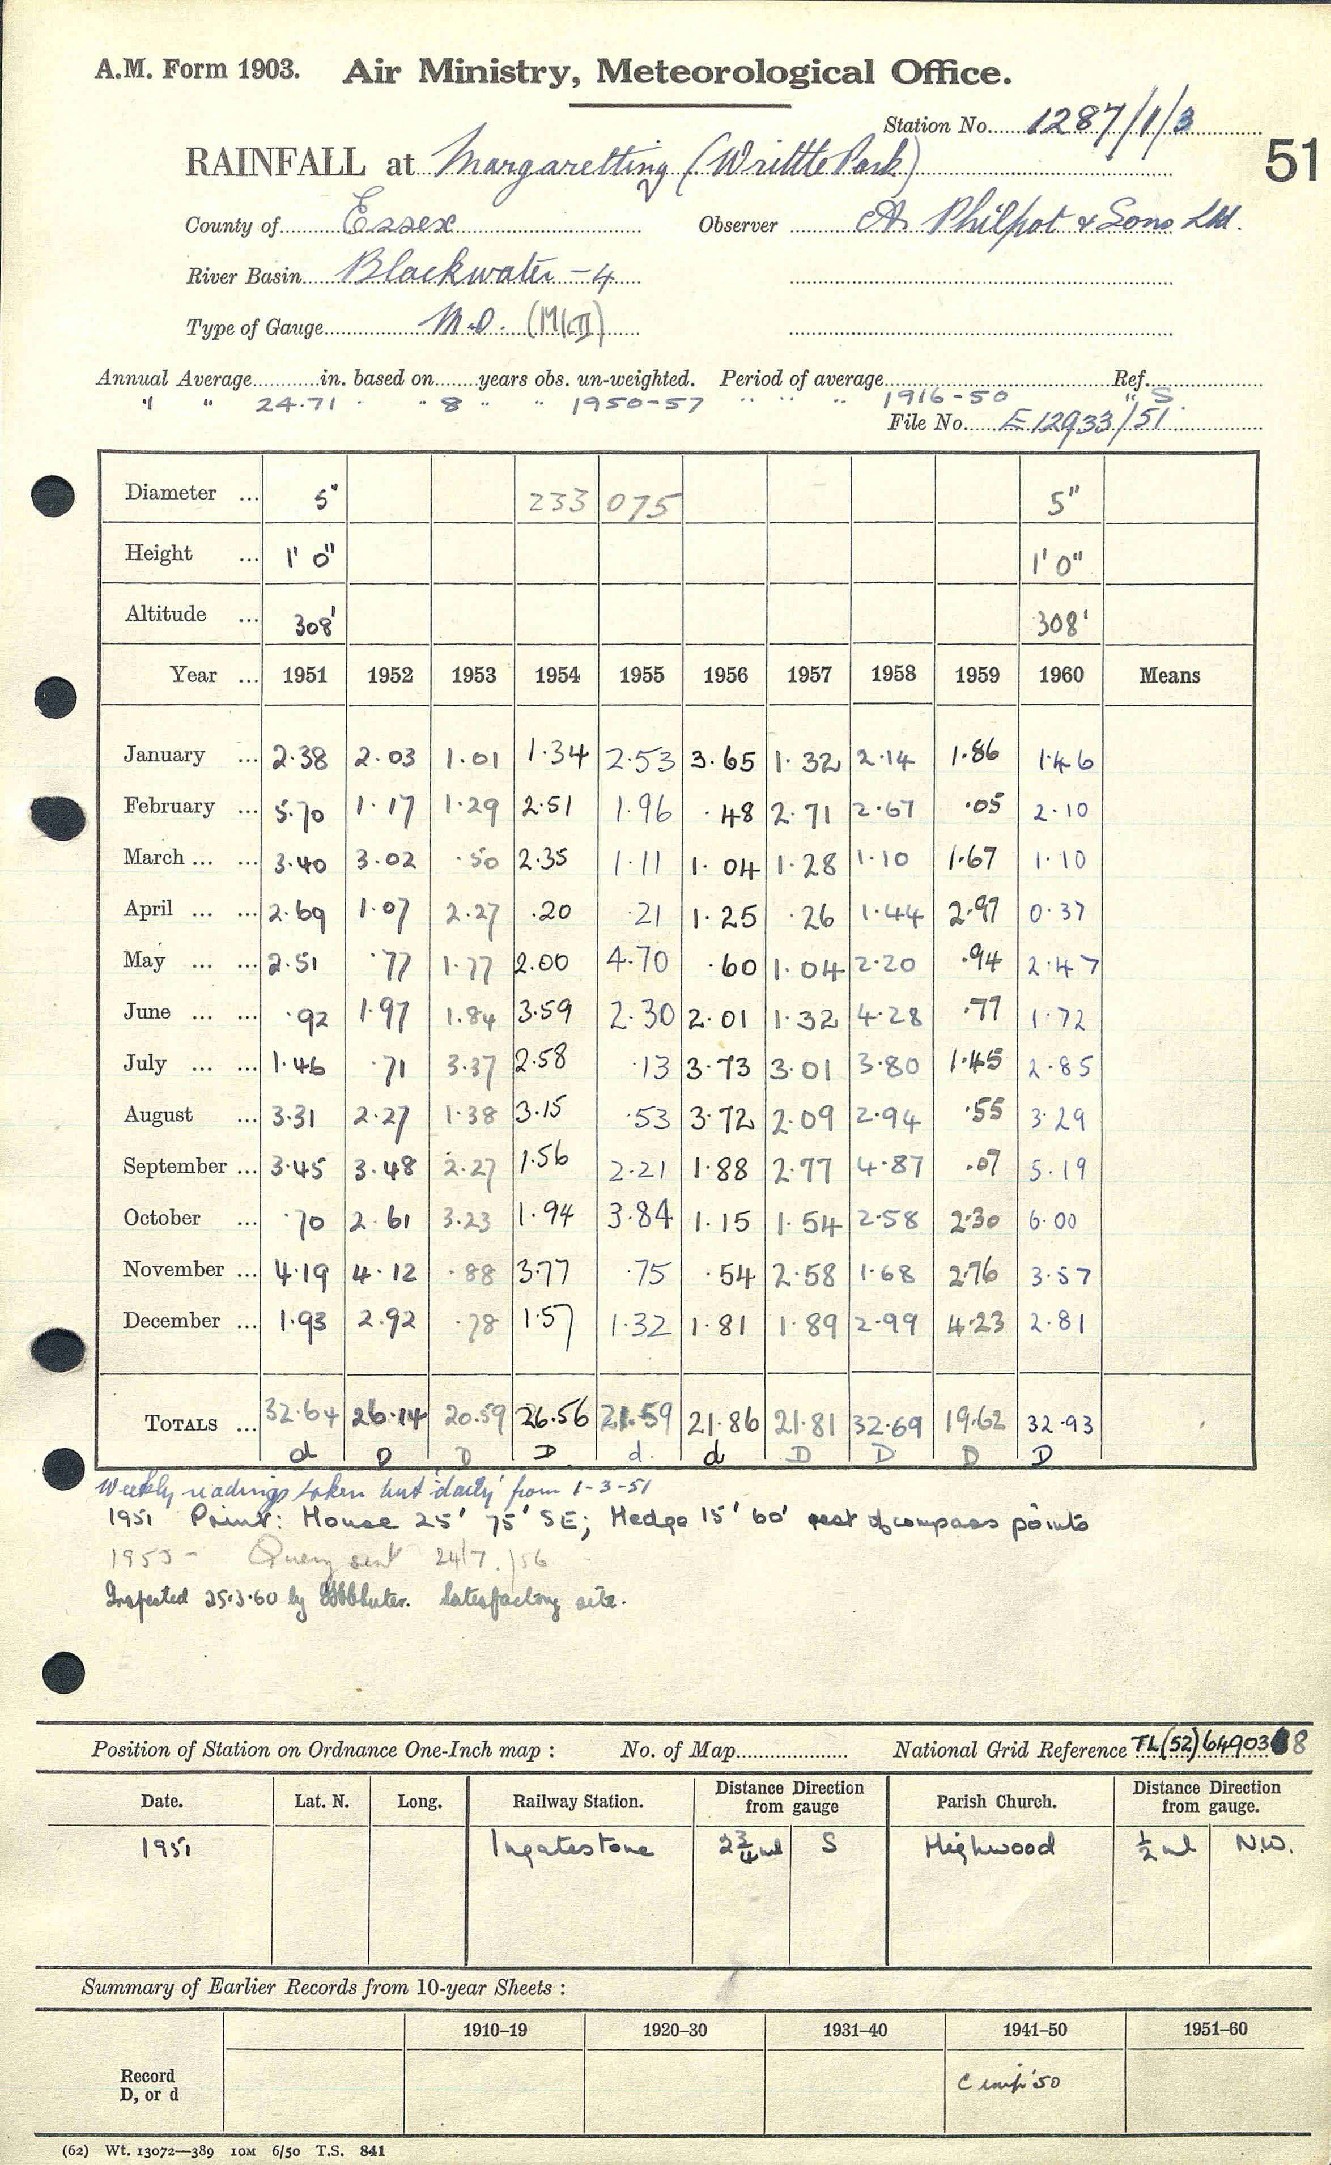 A.M. Form 1903. Air Ministry, Meteorological Office.
Station No. 1287/1/3
RAINFALL at Margaretting (Writtle Park) 51
County of Essex Observer A. Philpot & Sons Ltd.
River Basin Blackwater – 4
Type of Gauge M.O. (MkII)
Annual Average in. based on years obs. un-weighted. Period of average Ref.
" " 24.71 " " 8 " " 1950-57 " " " 1916-50 " S.
File No. E12933/51
Diameter ... 5" 233 075 5"
Height ... 1' 0" 1' 0"
Altitude ... 308' 308'
Year ... 1951 1952 1953 1954 1955 1956 1957 1958 1959 1960 Means
January ... 2.38 2.03 1.01 1.34 2.53 3.65 1.32 2.14 1.86 1.46
February ... 5.70 1.17 1.29 2.51 1.96 .48 2.71 2.67 .05 2.10
March ... ... 3.40 3.02 .50 2.35 1.11 1.04 1.28 1.10 1.67 1.10
April ... ... 2.69 1.07 2.27 .20 .21 1.25 .26 1.44 2.97 0.37
May ... ... 2.51 .77 1.77 2.00 4.70 .60 1.04 2.20 .94 2.47
June ... ... .92 1.97 1.84 3.59 2.30 2.01 1.32 4.28 .77 1.72
July ... ... 1.46 .71 3.37 2.58 .13 3.73 3.01 3.80 1.45 2.85
August ... 3.31 2.27 1.38 3.15 .53 3.72 2.09 2.94 .55 3.29
September ... 3.45 3.48 2.27 1.56 2.21 1.88 2.77 4.87 .07 5.19
October ... .70 2.61 3.23 1.94 3.84 1.15 1.54 2.58 2.30 6.00
November ... 4.19 4.12 .88 3.77 .75 .54 2.58 1.68 2.76 3.57
December ... 1.93 2.92 .78 1.57 1.32 1.81 1.89 2.99 4.23 2.81
TOTALS ... 32.64 26.14 20.59 26.56 21.59 21.86 21.81 32.69 19.62 32.93
d D D D d. d D D D D
Weekly readings taken but 'daily' from 1-3-51
1951 Princ: House 25' 75' SE; Hedge 15' 60' rest of compass points
1955 – Query sent 24/7/56
Inspected 25.3.60 by Satisfactory site.
Position of Station on Ordnance One-Inch map : No. of Map National Grid Reference TL(52)649038
Date. Lat. N. Long. Railway Station. Distance Direction from gauge Parish Church. Distance Direction from gauge.
1951 Ingatestone 2¾ ml S Highwood ½ ml N.W.
Summary of Earlier Records from 10-year Sheets :
1910–19 1920–30 1931–40 1941–50 1951–60
Record
D, or d '50
(62) Wt. 13072—389 10M 6/50 T.S. 841